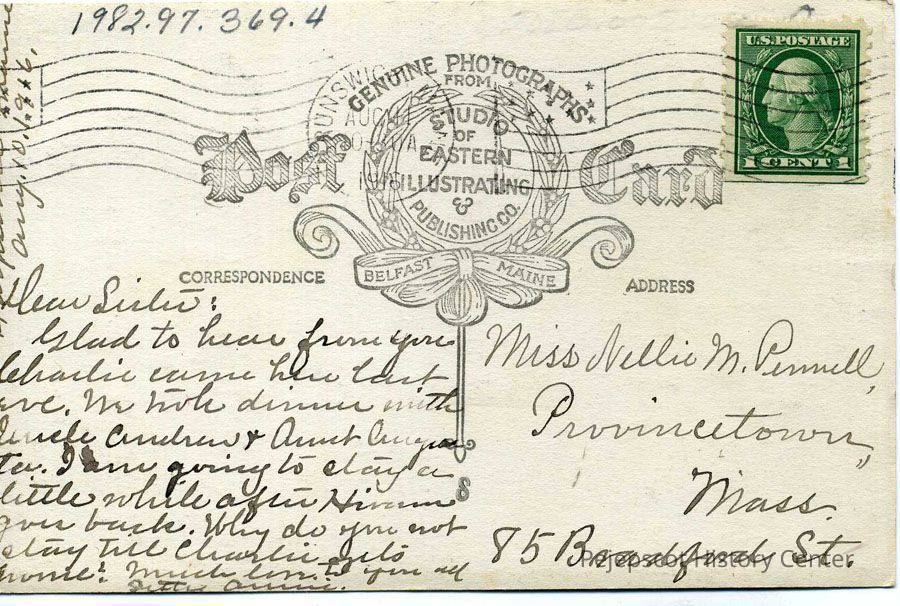 1982.97.369.4
Aug. 10, 1916.
U.S. POSTAGE
1 CENT 1
BRUNSWICK
AUG
1916
GENUINE PHOTOGRAPHS
FROM
STUDIO
OF
EASTERN
ILLUSTRATING
&
PUBLISHING CO.
BELFAST MAINE
Post Card
CORRESPONDENCE
ADDRESS
Dear Sister:
Glad to hear from you
Charlie came here last
eve. We took dinner with
Uncle Andrew & Aunt Augus
ta. I am going to stay a
little while after Hiram
goes back. Why do you not
stay till Charlie gets
home? Much love to you all
Sister Annie.
8
Miss Nellie M. Pennell,
Provincetown,
Mass.
85 Bradford St.
Pejepscot History Center